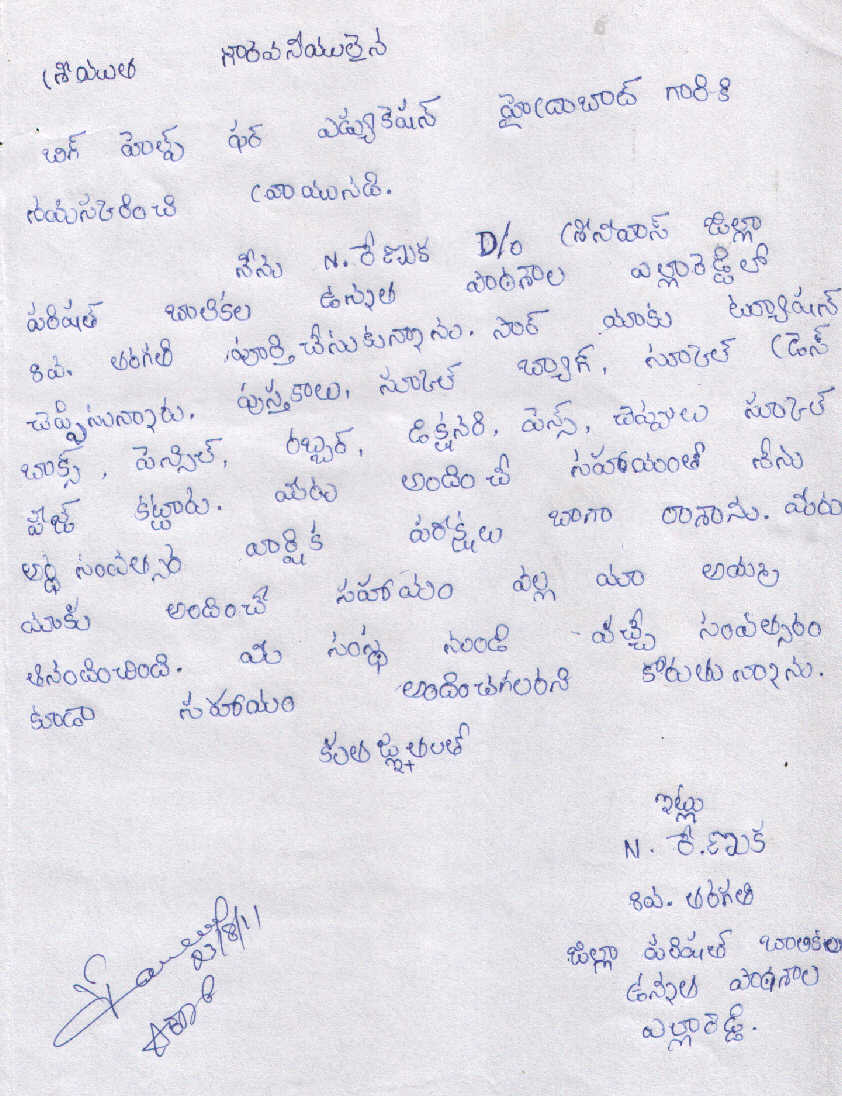 శ్రీయుత గౌరవనీయులైన
బిగ్ హెల్ప్ ఫర్ ఎడ్యుకేషన్ హైదాబాద్ గారికి
నమస్కరించి వ్రాయునది.
నేను N. రేణుక D/o శ్రీనివాస్ జిల్లా
పరిషత్ బాలికల ఉన్నత పాఠశాల ఎల్లారెడ్డిలో
8వ. తరగతి పూర్తి చేసుకున్నాను. సార్ మాకు ట్యూషన్
చెప్పిస్తున్నారు. పుస్తకాలు, స్కూల్ బ్యాగ్, స్కూల్ డ్రెస్
బాక్స్, పెన్సిల్, రబ్బర్, డిక్షనరి, పెన్స్, చెప్పులు స్కూల్
ఫీజ్ కట్టారు. మీరు అందించే సహాయంతో నేను
అర్ధ సంవత్సర వార్షిక పరీక్షలు బాగా రాశాను. మీరు
మాకు అందించే సహాయం వల్ల మా
తినందించింది. మీ సంస్థ నుండి వచ్చే సంవత్సరం
కూడా సహాయం అందించగలరని కోరుతున్నాను.
కృతజ్ఞతలతో
ఇట్లు
N. రేణుక
8వ. తరగతి
జిల్లా పరిషత్ బాలికల
ఉన్నత పాఠశాల
ఎల్లారెడ్డి.
23/8/11